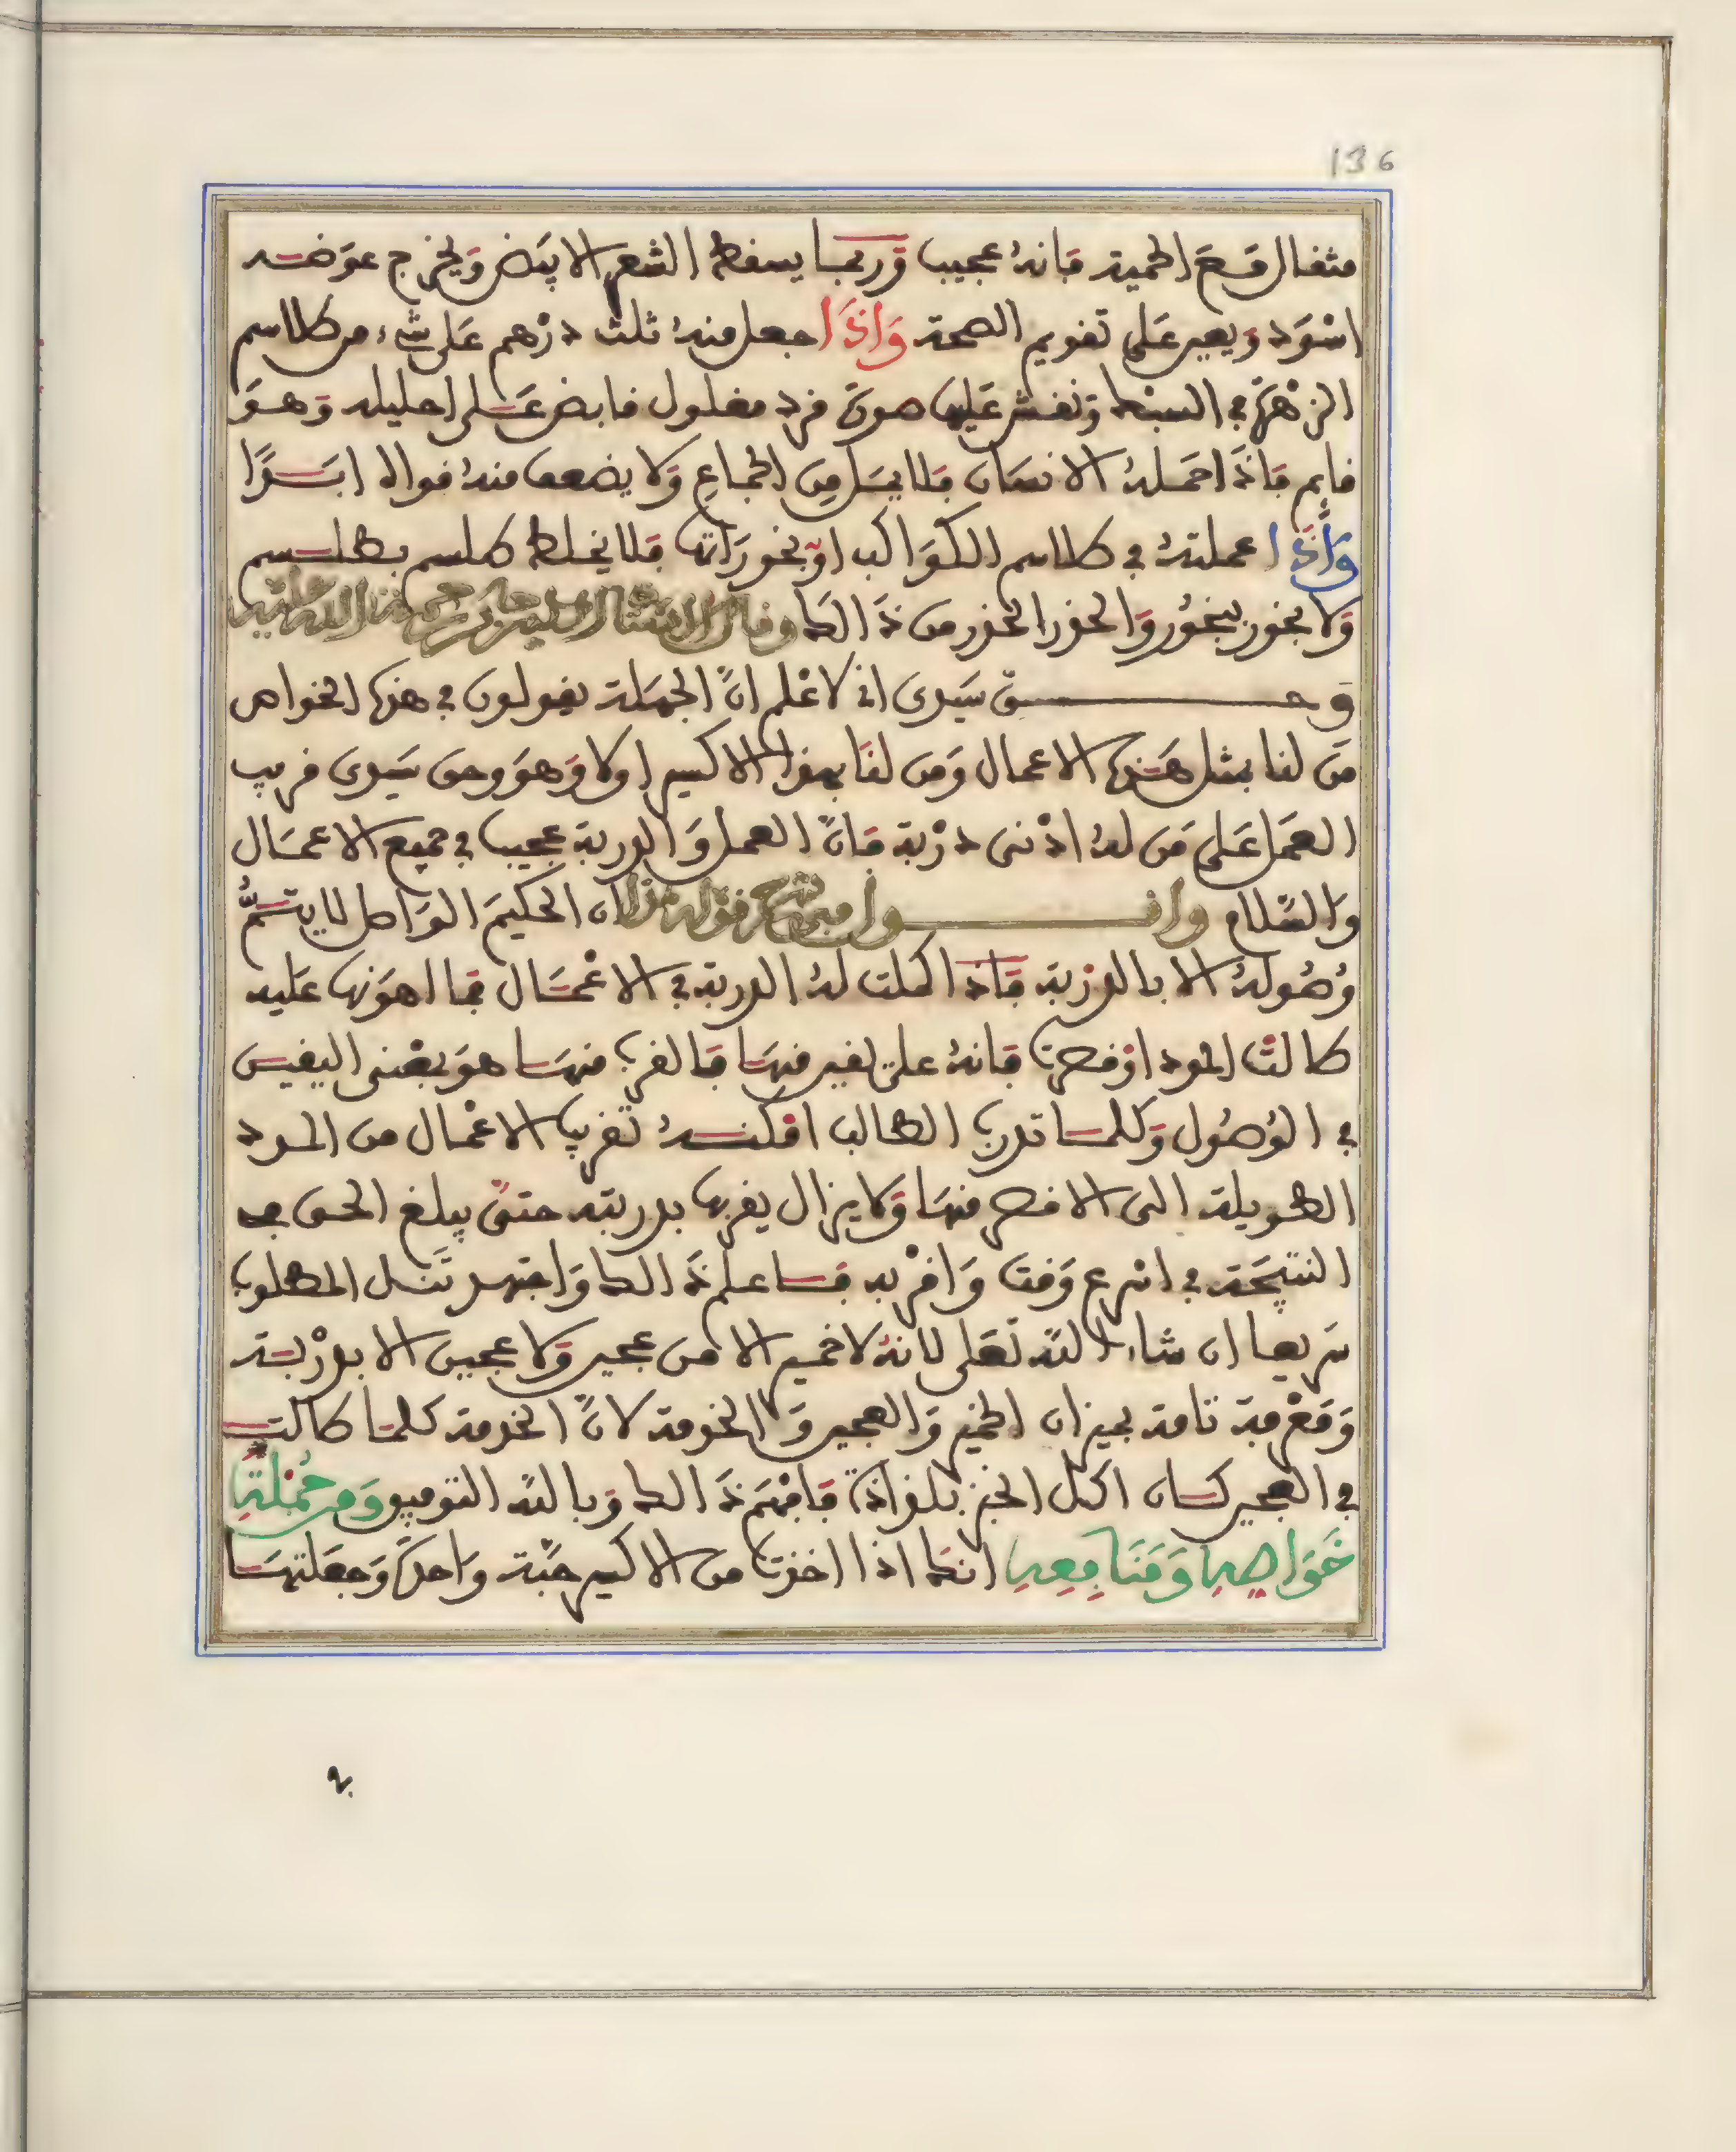 136
مثقال وقع الحمية فانه عجيب وربما يسقط الشعر الابيض ويخرج عوضه
اسود ويعين على تقويم الصحة واذا جعل منه ثلث درهم على شيء من طلاسم
الزهرة في السبط ونقش عليها صورة قرد مغلول قابض على احليله وهو
قايم فاذا حمله الانسان فلا يمل من الجماع ولا يضعف منه قواه ابدًا
واذا عملته في طلاسم الكواكب او بخوراتها فلا يخلط طلسم بطلسم
ولا بخور ببخور والحذر الحذر من ذالك وقال الامام جابر رحمة الله عليه
وحق سيدي اني لاعلم انّ الجهلة يقولون في هذه الخواص
من لنا بمثل هذه الاعمال ومن لنا بهذا الاكسير اولا وهو وحق سيدي قريب
العمل على من له ادنى دربة فانّ العمل والدربة عجيب في جميع الاعمال
والسّلام واقول في شرح قوله هذا ان الحكيم الواصل لا يتمّ
وصوله الا بالدربة فاذا كملت له الدربة في الاعمال فما اهونها عليه
طالت المدد او قصرت فانه على يقين منها فالقرب منها هو بمعنى اليقين
في الوصول وكلما تدرب الطالب امكنه تقريب الاعمال من المدد
الطويلة الى الاقصر منها ولا يزال يقربها بدربته حتى يبلغ الحق في
النتيجة في اسرع وقت واقربه فاعلم ذالك واجتهد تنل المطلوب
سريعا ان شاء اللّه تعلى لانه لا خمير الا من عجين ولا عجين الا بدربة
ومعرفة تامة بميزان الخمير والعجين والخدمة لانّ الخدمة كلما طالت
في العجين كان اكل الخبز بلذاذة فافهم ذالك وباللّه التوفيق ومن جملة
خواصه ومنافعه انك اذا اخذت من الاكسير حبّة واحدة وجعلتها